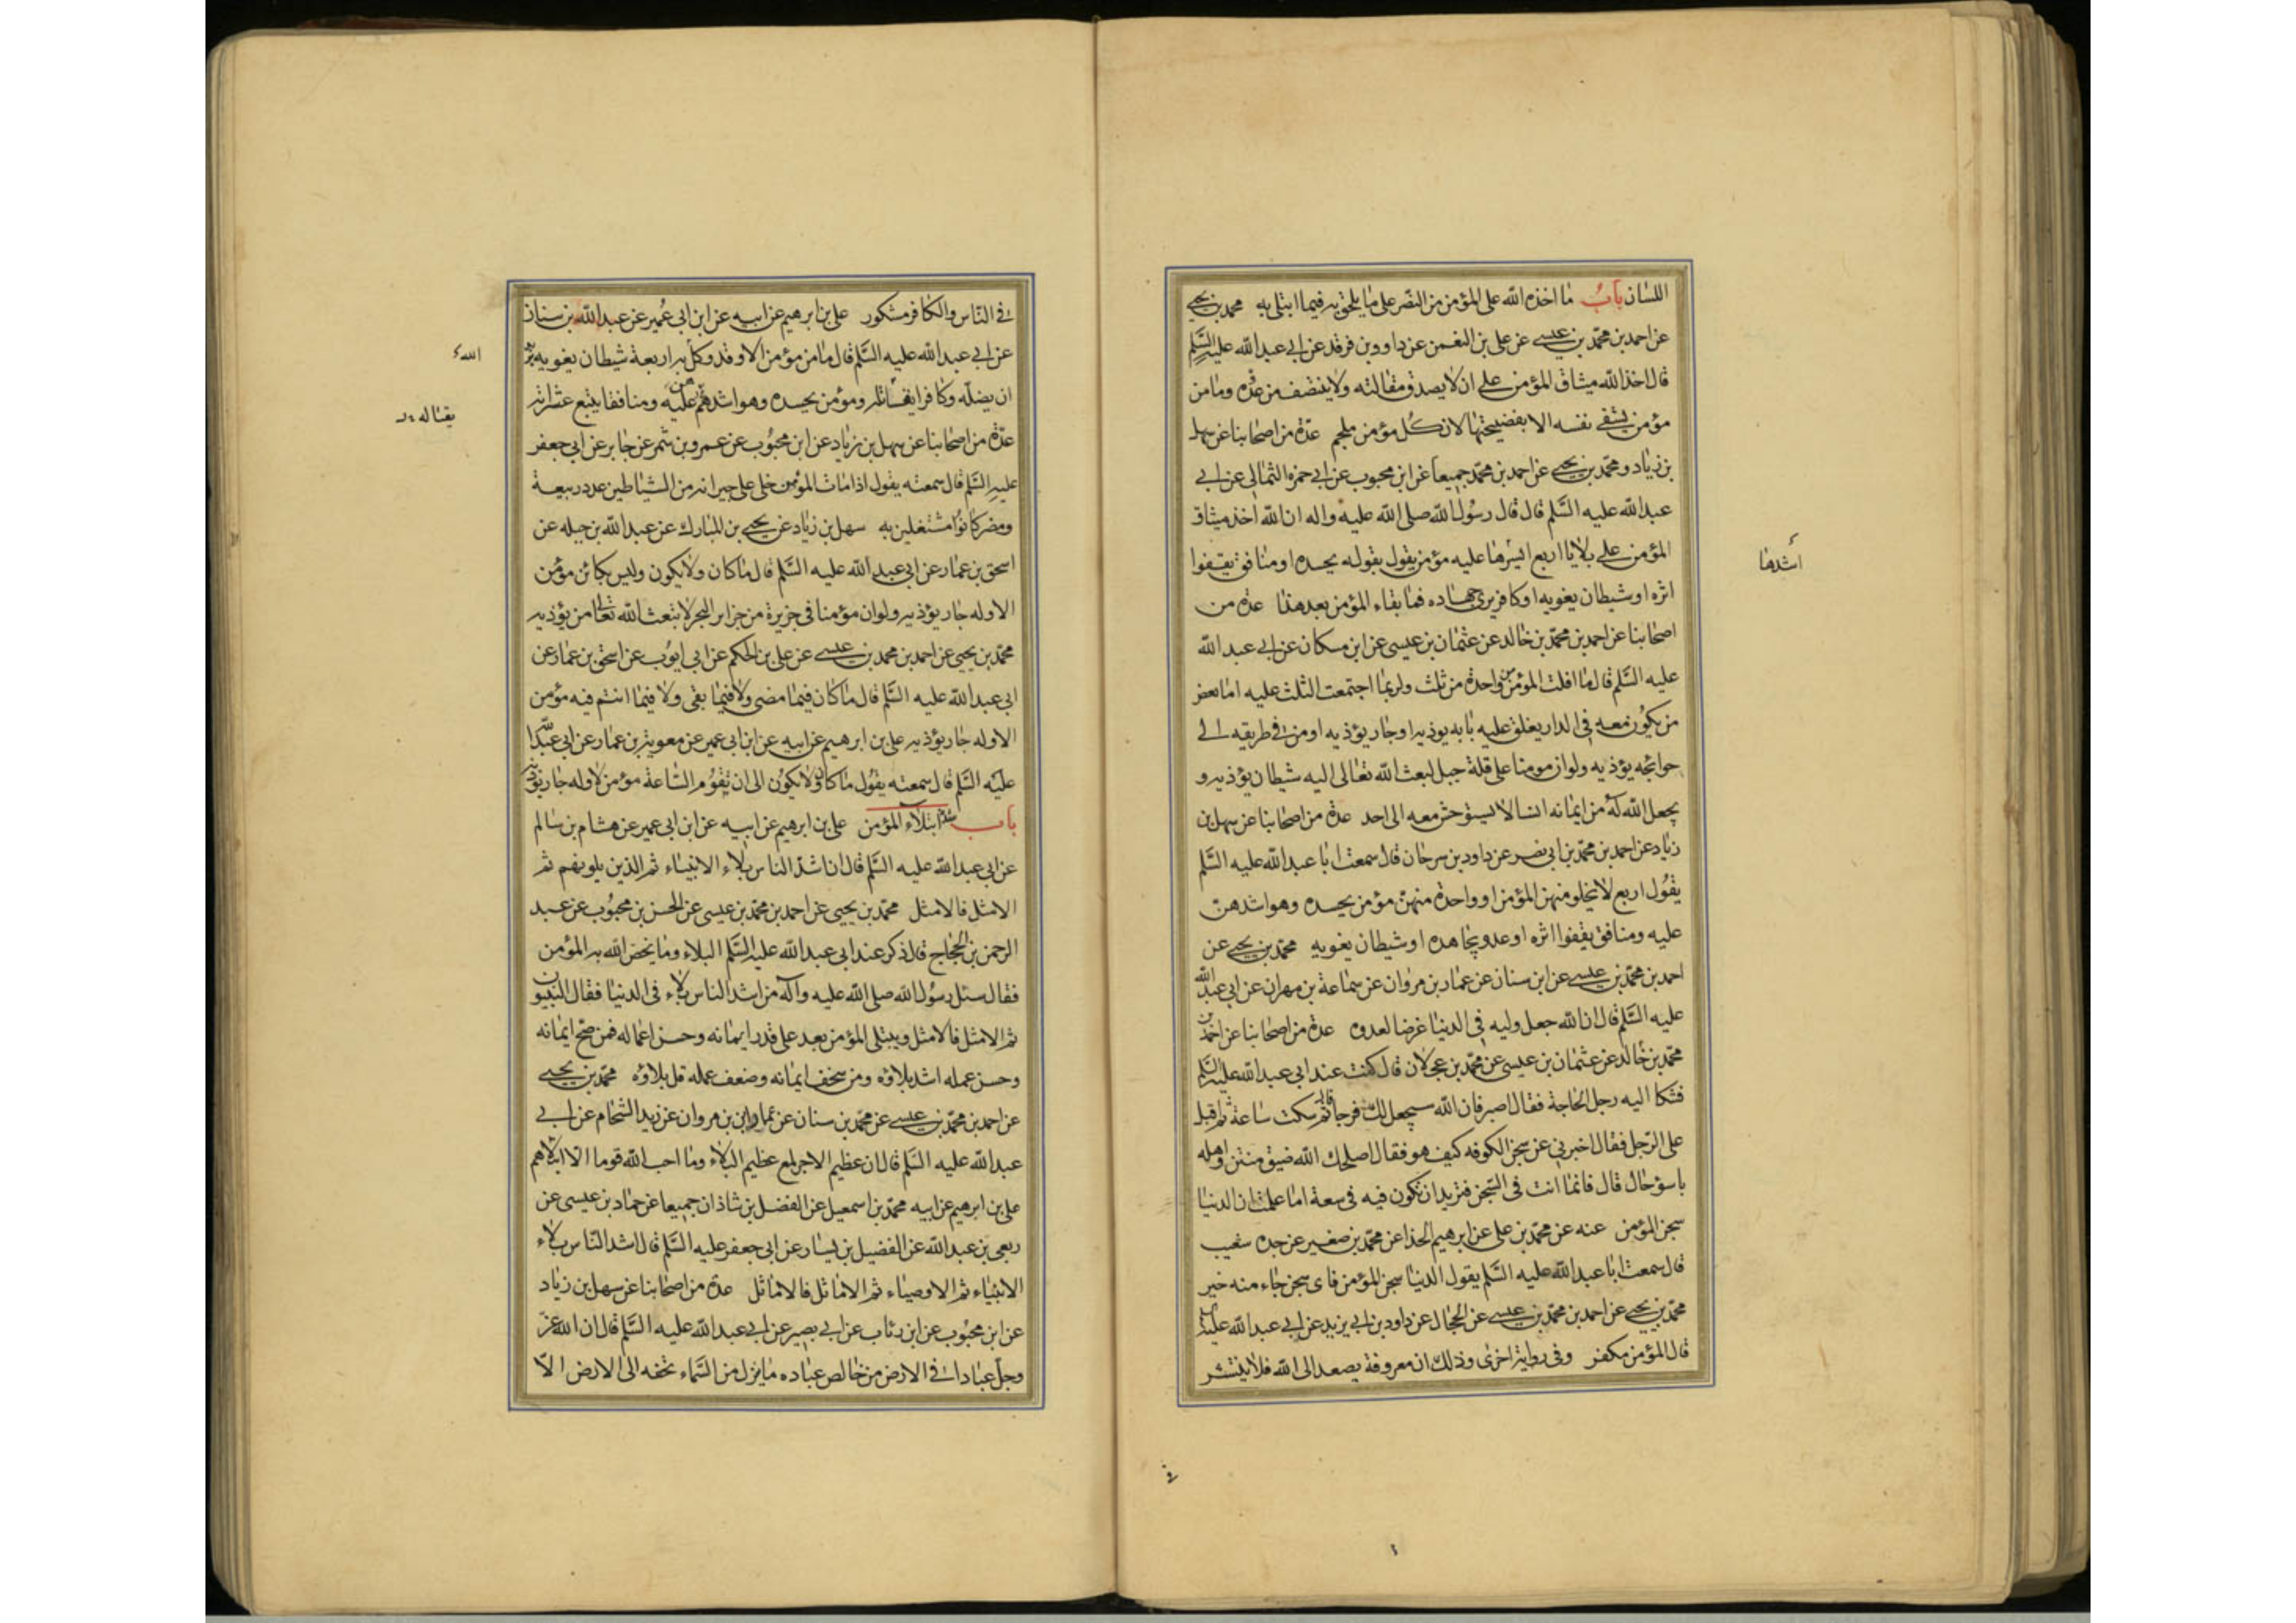 اللسان باب ما اخذه الله على المؤمن من الصبر على ما يلحق به فيما ابتلى به محمد بن يحيى
عن احمد بن محمد بن عيسى عن على بن النعمن عن داوود بن فرقد عن ابى عبد الله عليه السلم
قال اخذ الله ميثاق المؤمن على ان لا يصدق مقالته ولا ينتصف من عدوه وما من
مؤمن يشفى نفسه الا بفضيحتها لان كل مؤمن ملجم عدة من اصحابنا عن سهل
بن زياد ومحمد بن يحيى عن احمد بن محمد جميعا عن ابن محبوب عن ابى حمزه الثمالى عن ابى
عبد الله عليه السلم قال قال رسول الله صلى الله عليه واله ان الله اخذ ميثاق
المؤمن على بلايا اربع ايسرها عليه مؤمن يقول بقوله يحسده او منافق يقفوا
اشدها
اثره او شيطان يغويه او كافر يرى جهاده فما بقاء المؤمن بعد هذا عدة من
اصحابنا عن احمد بن محمد بن خالد عن عثمان بن عيسى عن ابن مسكان عن ابى عبد الله
عليه السلم قال ما افلت المؤمن من واحدة من ثلث ولربما اجتمعت الثلث عليه اما بعض
من يكون معه فى الدار يغلق عليه بابه يوذيه او جار يؤذيه او من فى طريقه الى
حوائجه يؤذيه ولو ان مومنا على قلة جبل لبعث الله تعالى اليه شيطان يؤذيه و
يجعل الله له من ايمانه انسا لا يستوحش معه الى احد عدة من اصحابنا عن سهل بن
زياد عن احمد بن محمد بن ابى نصر عن داود بن سرحان قال سمعت ابا عبد الله عليه السلم
يقول اربع لا يخلو منهن المؤمن او واحدة منهن مؤمن يحسده وهو اشدهن
عليه ومنافق يقفوا اثره او عدو يجاهده او شيطان يغويه محمد بن يحيى عن
احمد بن محمد بن عيسى عن ابن سنان عن عمار بن مروان عن سماعة بن مهران عن ابى عبد الله
عليه السلم قال ان الله جعل وليه فى الدنيا غرضا لعدوه عدة من اصحابنا عن احمد بن
محمد بن خالد عن عثمان بن عيسى عن محمد بن عجلان قال كنت عند ابى عبد الله عليه السلم
فشكا اليه رجل الحاجة فقال اصبر فان الله سيجعل لك فرجا قال ثم سكت ساعة ثم اقبل
على الرجل فقال اخبرنى عن سجن الكوفه كيف هو فقال اصلحك الله ضيق منتن واهله
باسوء حال قال فانما انت فى السجن فتريد ان تكون فيه فى سعة اما علمت ان الدنيا
سجن المؤمن عنه عن محمد بن على عن ابرهيم الحذا عن محمد بن صغير عن جده شعيب
قال سمعت ابا عبد الله عليه السلم يقول الدنيا سجن المؤمن فاى سجن جاء منه خير
محمد بن يحيى عن احمد بن محمد بن عيسى عن الحجال عن داود بن ابى يزيد عن ابى عبد الله عليه السلم
قال المؤمن مكفر وفى رواية اخرى وذلك ان معروفة يصعد الى الله فلا ينتشر
فى الناس والكافر مشكور على بن ابرهيم عن ابيه عن ابن ابى عمير عن عبد الله بن سنان
عن ابى عبد الله عليه السلم قال ما من مؤمن الا وقد وكل به اربعة شيطان يغويه يريد
الله
ان يضله وكافرا يغتاله ومؤمن يحسده وهو اشدهم عليه ومنافقا يتبع عثراته
يقتاله
عدة من اصحابنا عن سهل بن زياد عن ابن محبوب عن عمرو بن شمر عن جابر عن ابى جعفر
عليه السلم قال سمعته يقول اذا مات المؤمن خلى على جيرانه من الشياطين عدد ربيعة
ومضر كانوا مشتغلين به سهل بن زياد عن يحيى بن المبارك عن عبد الله بن جبله عن
اسحق بن عمار عن ابى عبد الله عليه السلم قال ما كان ولا يكون وليس بكائن مؤمن
الا وله جار يؤذيه ولو ان مؤمنا فى جزيرة من جزاير البحر لابتعث الله تعالى من يؤذيه
محمد بن يحيى عن احمد بن محمد بن عيسى عن على بن الحكم عن ابى ايوب عن اسحق بن عمار عن
ابى عبد الله عليه السلم قال ما كان فيما مضى ولا فيما بقى ولا فيما انتم فيه مؤمن
الا وله جار يؤذيه على بن ابرهيم عن ابيه عن ابن ابى عمير عن معوية بن عمار عن ابى عبد الله
عليه السلم قال سمعته يقول ما كان ولا يكون الى ان تقوم الساعة مؤمن الا وله جار يؤذيه
باب شدة ابتلاء المؤمن على بن ابرهيم عن ابيه عن ابن ابى عمير عن هشام بن سالم
عن ابى عبد الله عليه السلم قال ان اشد الناس بلاء الانبياء ثم الذين يلونهم ثم
الامثل فالامثل محمد بن يحيى عن احمد بن محمد بن عيسى عن الحسن بن محبوب عن عبد
الرحمن بن الحجاج قال ذكر عند ابى عبد الله عليه السلم البلاء وما يخص الله به المؤمن
فقال سئل رسول الله صلى الله عليه وآله من اشد الناس بلاء فى الدنيا فقال النبيون
ثم الامثل فالامثل ويبتلى المؤمن بعد على قدر ايمانه وحسن اعماله فمن صح ايمانه
وحسن عمله اشد بلاؤه ومن سخف ايمانه وضعف عمله قل بلاؤه محمد بن يحيى
عن احمد بن محمد بن عيسى عن محمد بن سنان عن عمار بن مروان عن زيد الشحام عن ابى
عبد الله عليه السلم قال ان عظيم الاجر لمع عظيم البلاء وما احب الله قوما الا ابتلاهم
على بن ابرهيم عن ابيه محمد بن اسمعيل عن الفضل بن شاذان جميعا عن حماد بن عيسى عن
ربعى بن عبد الله عن الفضيل بن يسار عن ابى جعفر عليه السلم قال اشد الناس بلاء
الانبياء ثم الاوصياء ثم الاماثل فالاماثل عدة من اصحابنا عن سهل بن زياد
عن ابن محبوب عن ابن رئاب عن ابى بصير عن ابى عبد الله عليه السلم قال ان الله عز
وجل عبادا فى الارض من خالص عباده ما ينزل من السماء تحفه الى الارض الا